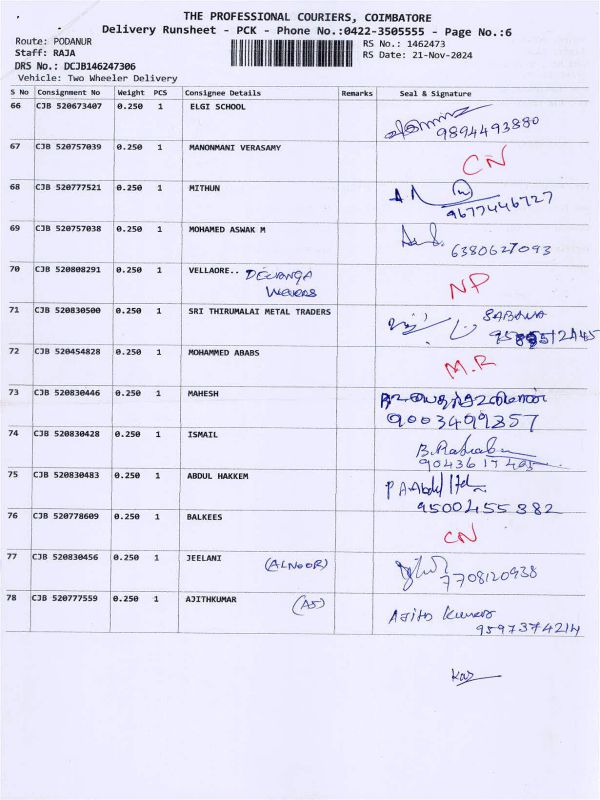 THE PROFESSIONAL COURIERS, COIMBATORE
Delivery Runsheet - PCK - Phone No.:0422-3505555 - Page No.:6
Route: PODANUR
RS No.: 1462473
Staff: RAJA
RS Date: 21-Nov-2024
DRS No.: DCJB146247306
Vehicle: Two Wheeler Delivery
S No Consignment No Weight PCS Consignee Details Remarks Seal & Signature
66 CJB 520673407 0.250 1 ELGI SCHOOL
9894493880
67 CJB 520757039 0.250 1 MANONMANI VERASAMY
CN
68 CJB 520777521 0.250 1 MITHUN
9677446727
69 CJB 520757038 0.250 1 MOHAMED ASWAK M
6380627093
70 CJB 520808291 0.250 1 VELLAORE.. DEVANGA
NP
71 CJB 520830500 0.250 1 SRI THIRUMALAI METAL TRADERS
72 CJB 520454828 0.250 1 MOHAMMED ABABS
M.R
73 CJB 520830446 0.250 1 MAHESH
9003499257
74 CJB 520830428 0.250 1 ISMAIL
75 CJB 520830483 0.250 1 ABDUL HAKKEM
9500455382
76 CJB 520778609 0.250 1 BALKEES
CN
77 CJB 520830456 0.250 1 JEELANI (ALNOOR)
7708120938
78 CJB 520777559 0.250 1 AJITHKUMAR (AJ)
Ajith Kumar
9597374214